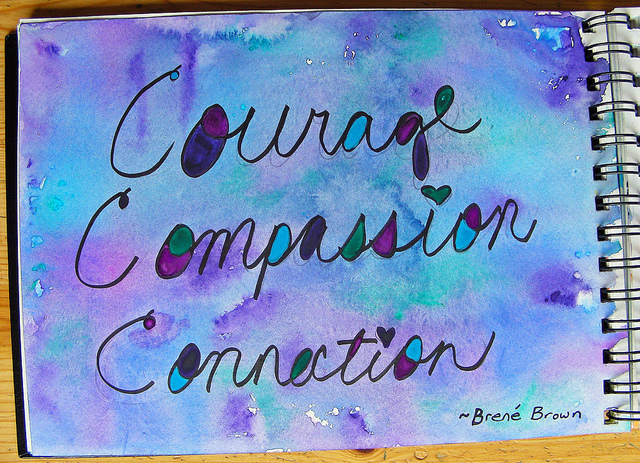 Courage
Compassion
Connection
~Brené Brown